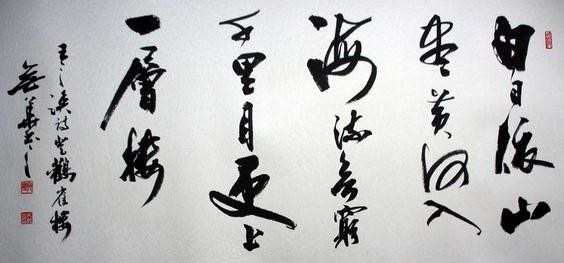 白日依山
盡黄河入
海流欲窮
千里目更上
一層樓
王之涣詩登鸛雀樓